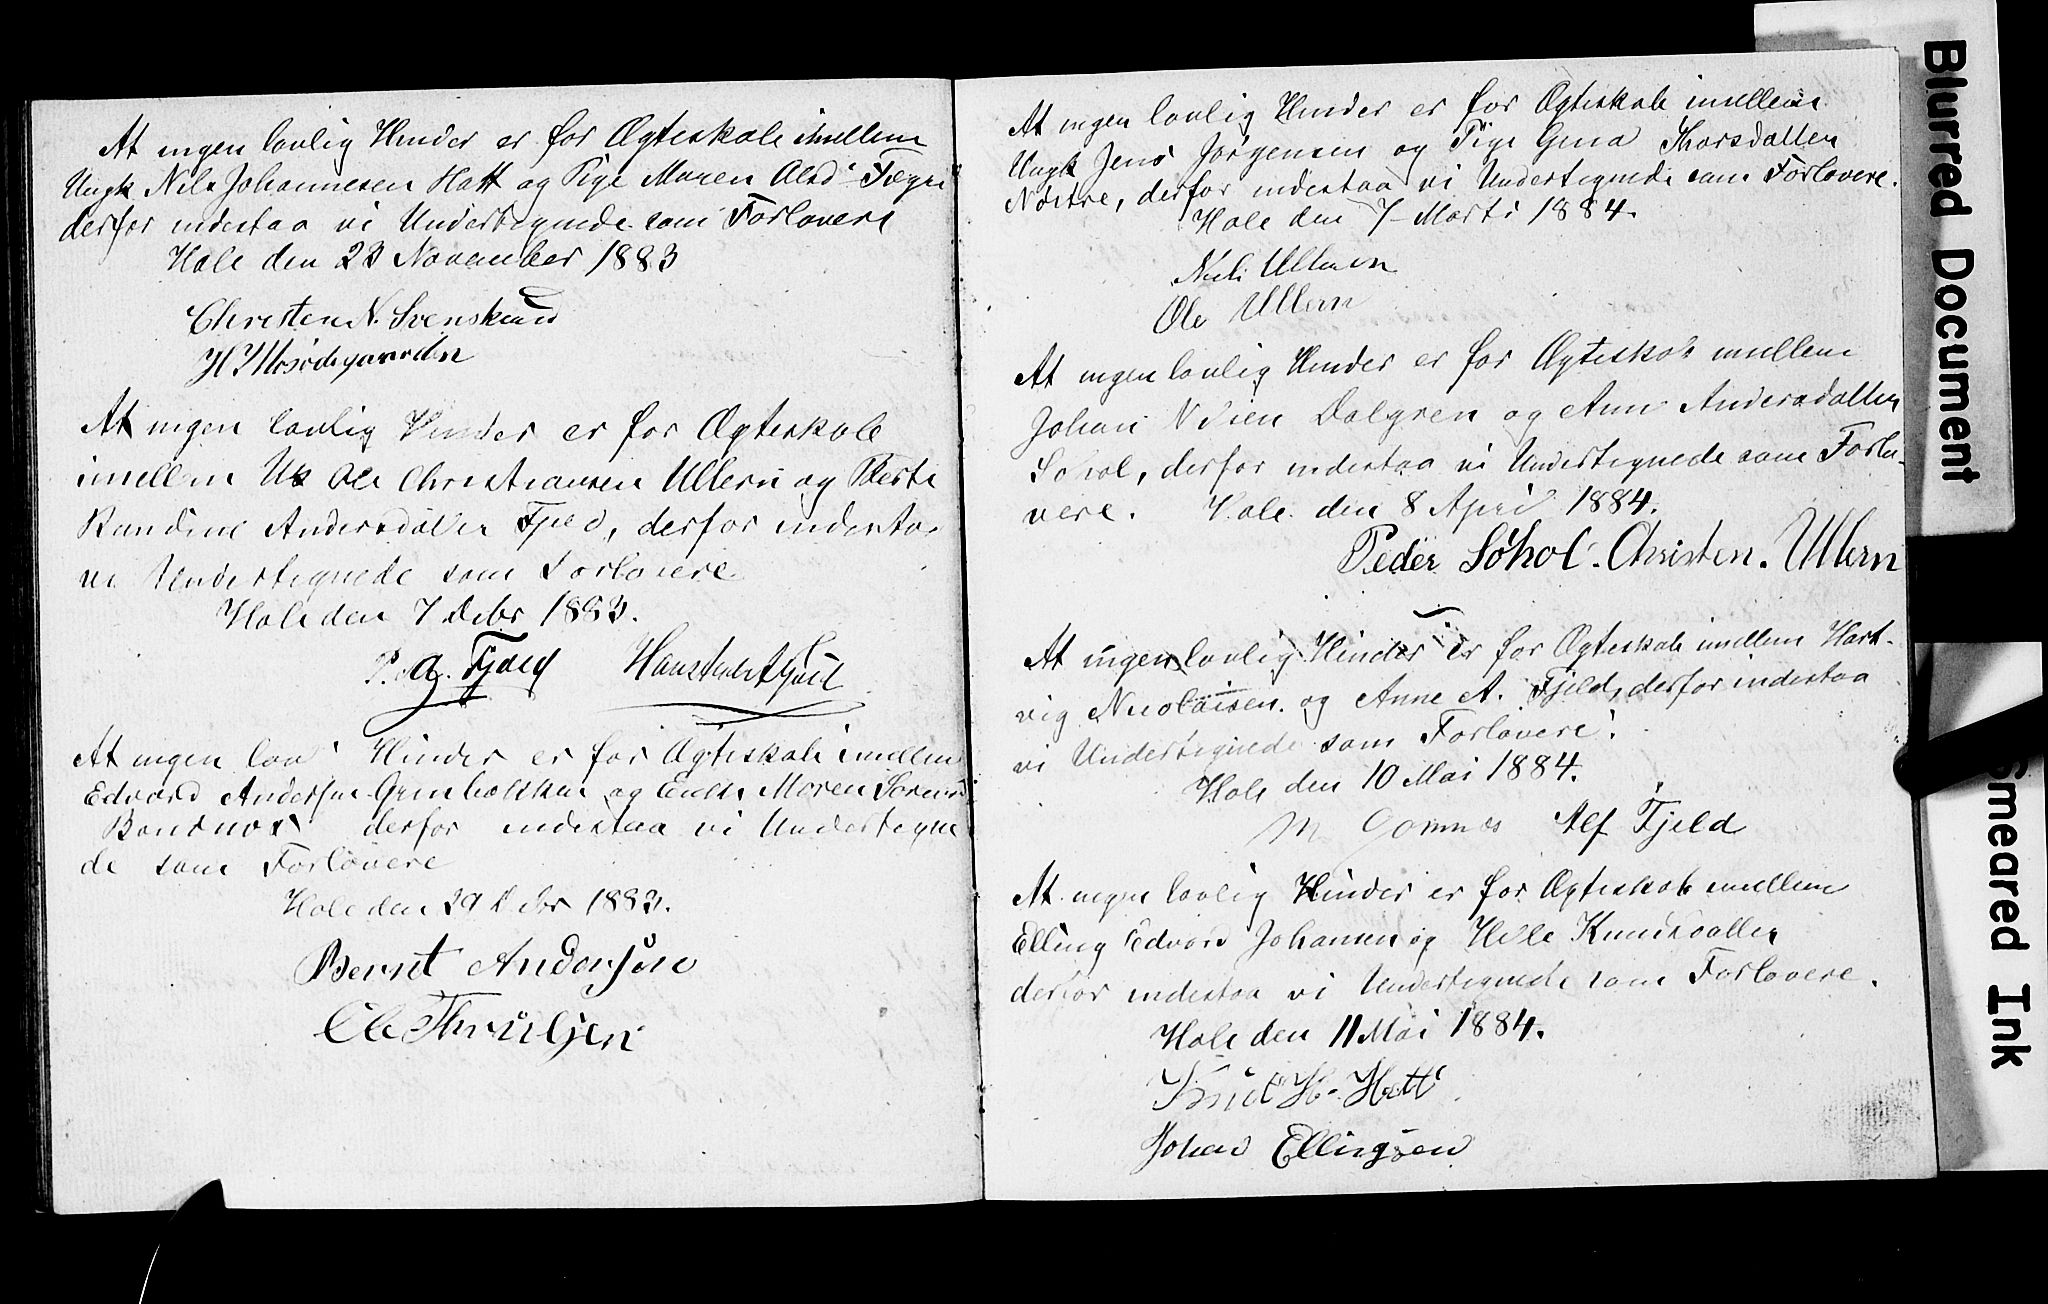 At ingen lovlig Hinder er for Ægteskab imellem
Ungk Nils Johannesen Hatt og Pige Maren Olsd
derfor indestaa vi Undertegnede som Forlovere
Hole den 23 November 1883
Christen N. Svensrud
At ingen lovlig Hinder er for Ægteskab
imellem Uk Ole Christiansen Ullern og
Randine Andersdatter Fjeld, derfor indestaa
vi Undertegnede som Forlovere
Hole den 7 Debr 1883.
P. A. Fjeld
At ingen lov Hinder er for Ægteskab imellem
Edvard Andersen og Enke Maren
derfor indestaa vi Undertegne
de som Forlovere
Hole den 29 Debr 1883.
Bernt Andersen
Ole
At ingen lovlig Hinder er for Ægteskab imellem
Ungk Jens Jørgensen og Pige Gina Thorsdatter
derfor indestaa vi Undertegnede som Forlovere.
Hole den 7 Marts 1884.
Nils Ullern
Ole Ullern
At ingen lovlig Hinder er for Ægteskab imellem
Johan Dalgren og Ann Andersdatter
Søhol, derfor indestaa vi Undertegnede som Forlo-
vere. Hole den 8 April 1884.
Peder Søhol. Christen. Ullern
At ingen lovlig Hinder er for Ægteskab imellem Hart-
vig Nicolaisen og Anne A. Fjeld, derfor indestaa
vi Undertegnede som Forlovere.
Hole den 10 Mai 1884.
M Gomnæs Alf Fjeld
At ingen lovlig Hinder er for Ægteskab imellem
Elling Edvard Johansen og Helle Knudsdatter
derfor indestaa vi Undertegnede som Forlovere.
Hole den 11 Mai 1884.
Knut H. Hatt
Johan Ellingsen
Blurred Document
Smeared Ink